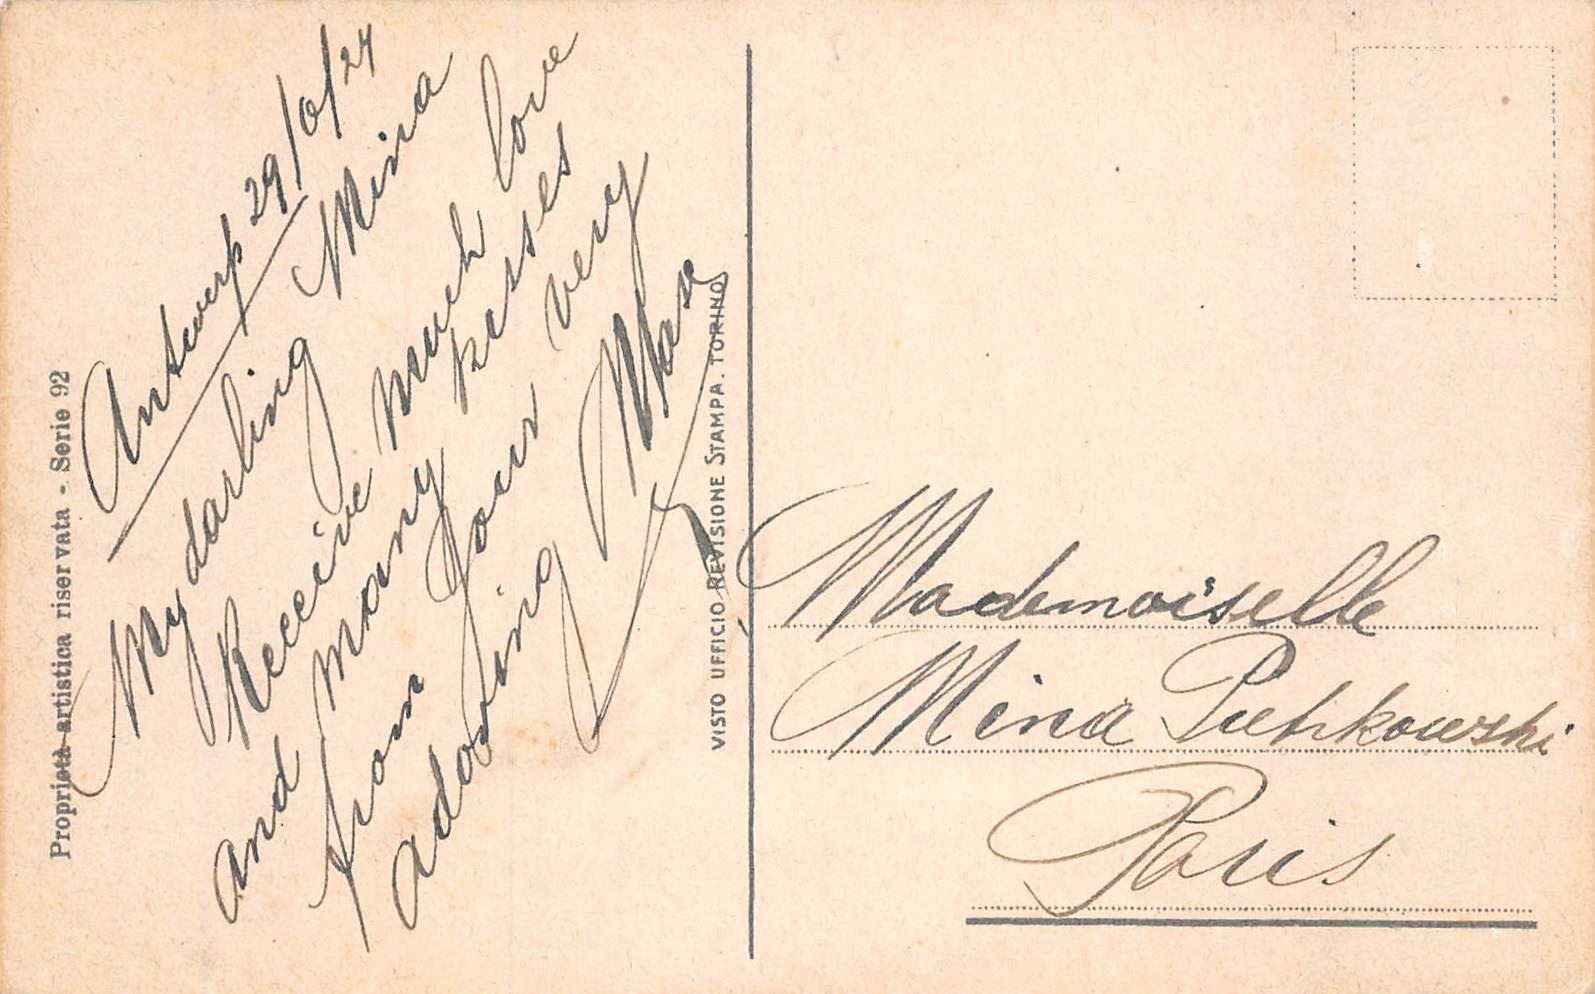 Proprietà artistica riservata - Serie 92
Antwerp
My darling Mina
Receive much love
and many kisses
from your very
adoring Max
VISTO UFFICIO REVISIONE STAMPA. TORINO
Mademoiselle
Mina
Paris